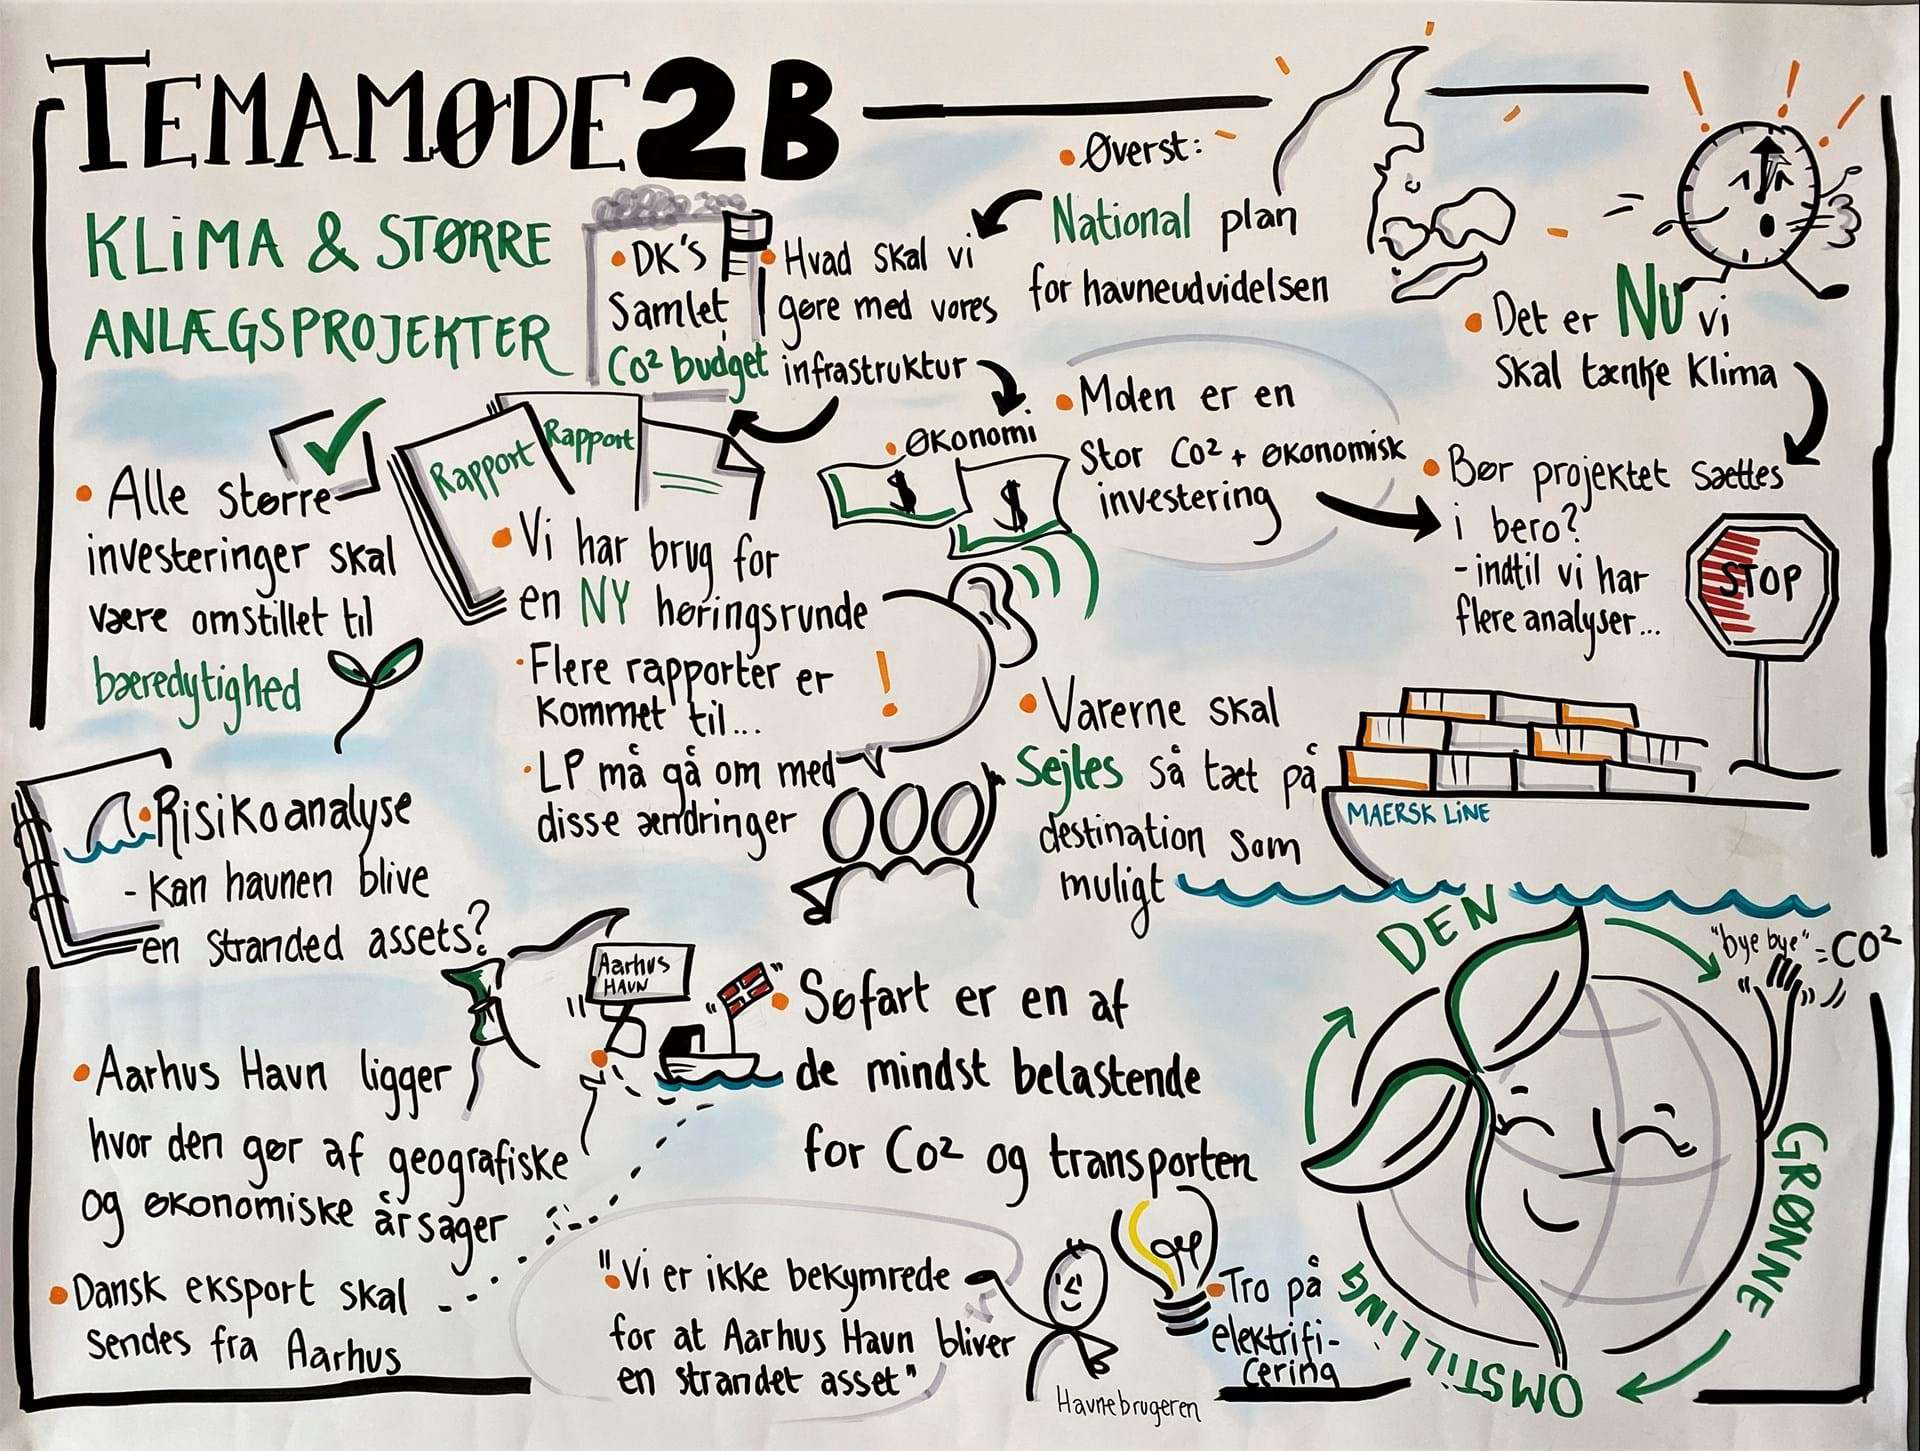 TEMAMØDE 2B
KLIMA & STØRRE
ANLÆGSPROJEKTER
• DK'S
Samlet
Co² budget
• Hvad skal vi
gøre med vores
infrastruktur
• Øverst:
National plan
for havneudvidelsen
• Det er NU vi
skal tænke klima
• Alle større
investeringer skal
være omstillet til
bæredygtighed
Rapport
Rapport
• Vi har brug for
en NY høringsrunde
• Flere rapporter er
kommet til...
• LP må gå om med
disse ændringer
!
• ØKONOMI
$
$
• Molen er en
Stor Co² + økonomisk
investering
• Bør projektet sættes
i bero?
- indtil vi har
flere analyser...
STOP
• Varerne skal
Sejles så tæt på
destination som
muligt
MAERSK LINE
• Risikoanalyse
- kan havnen blive
en stranded assets?
Aarhus
HAVN
• Aarhus Havn ligger
hvor den gør af geografiske
og økonomiske årsager
• Dansk eksport skal
sendes fra Aarhus
• Søfart er en af
de mindst belastende
for Co² og transporten
"• Vi er ikke bekymrede
for at Aarhus Havn bliver
en strandet asset"
Havnebrugeren
• Tro på
elektrifi-
cering
DEN
GRØNNE
OMSTILLING
"bye bye" = CO²